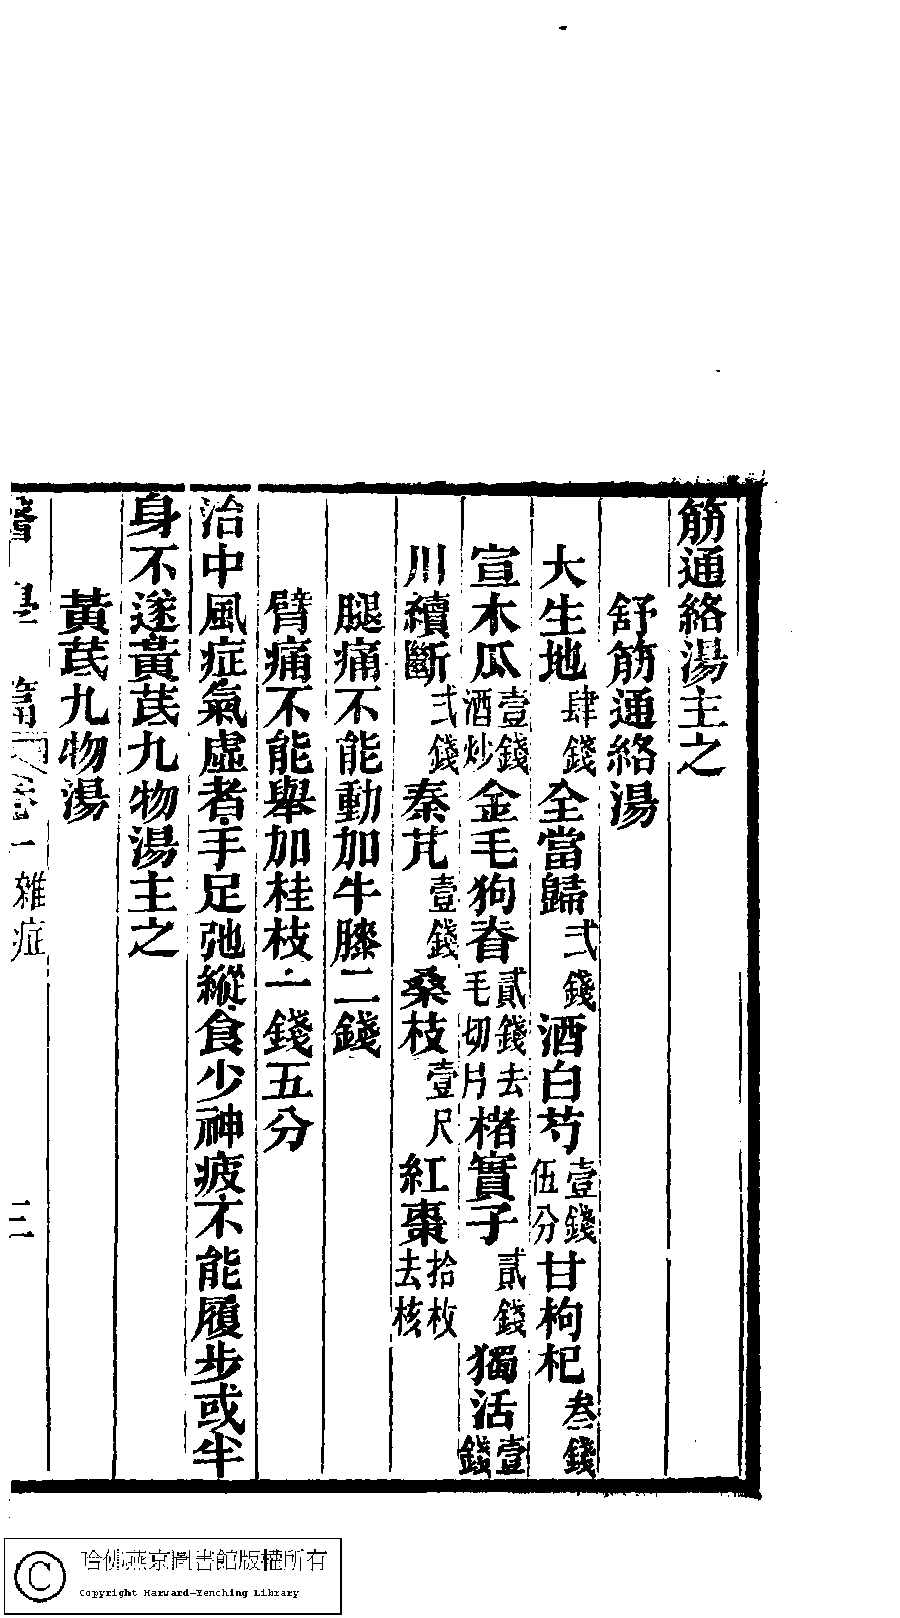 筋通絡湯主之
舒筋通絡湯
大生地肆錢全當歸弍錢酒白芍壹錢伍分甘枸杞叁錢
宣木瓜壹錢酒炒金毛狗脊貳錢去毛切片楮實子貳錢獨活壹錢
川續斷弍錢秦艽壹錢桑枝壹尺紅棗拾枚去核
腿痛不能動加牛膝二錢
臂痛不能舉加桂枝一錢五分
治中風症氣虛者手足弛縱食少神疲不能履步或半
身不遂黃芪九物湯主之
黃芪九物湯
卷一雜症
三
哈佛燕京圖書館版權所有
Copyright Harvard-Yenching Library